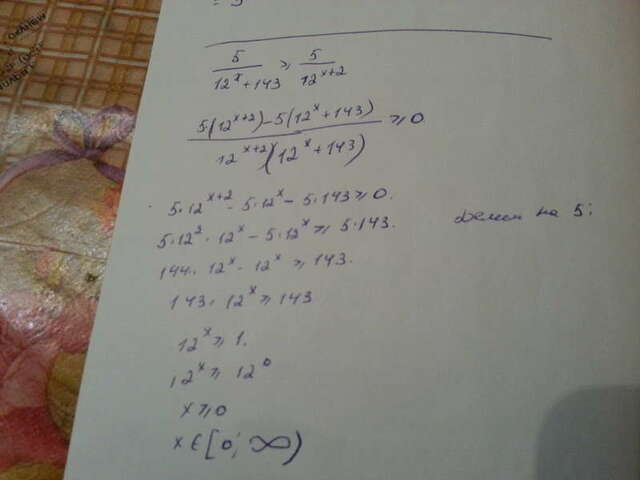 = 5
5/(12^x + 143) ≥ 5/12^(x+2)
(5(12^(x+2)) - 5(12^x + 143))/(12^(x+2)(12^x + 143)) ≥ 0
5·12^(x+2) - 5·12^x - 5·143 ≥ 0.
5·12^2·12^x - 5·12^x ≥ 5·143. делим на 5:
144·12^x - 12^x ≥ 143.
143·12^x ≥ 143
12^x ≥ 1.
12^x ≥ 12^0
x ≥ 0
x ∈ [0; ∞)